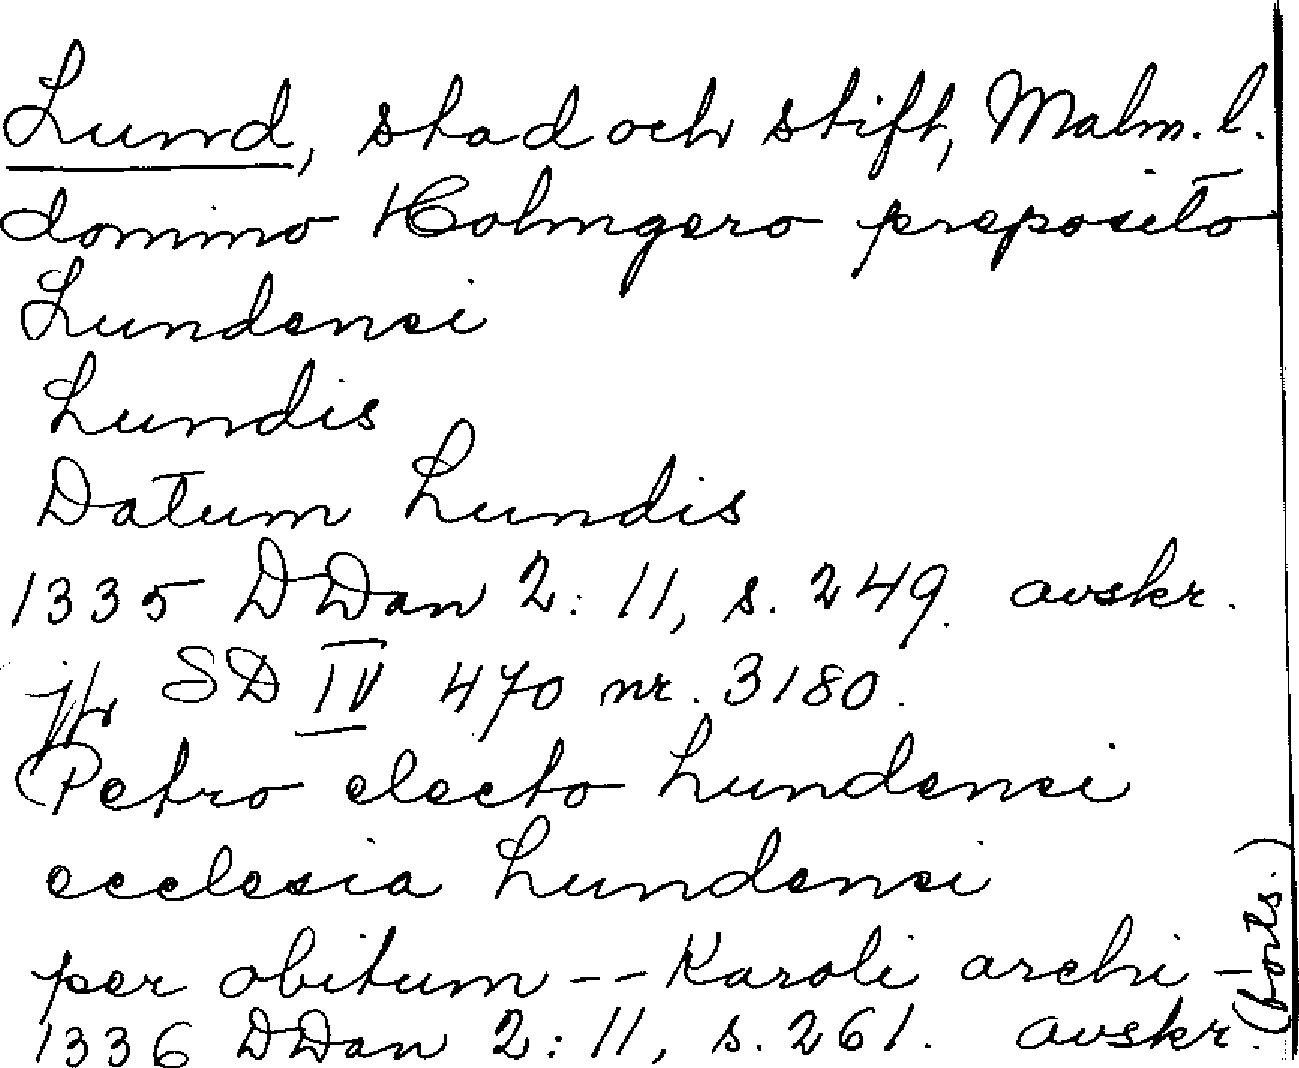 Lund, stad och stift, Malm. l.
domino Holmgero preposito
Lundensi
Lundis
Datum Lundis
1335 DDan 2: 11, s. 249. avskr.
jfr SD IV 470 nr. 3180.
Petro electo Lundensi
ecclesia Lundensi
per obitum -- Karoli archi-
1336 DDan 2: 11, s. 261. avskr.
(forts.)